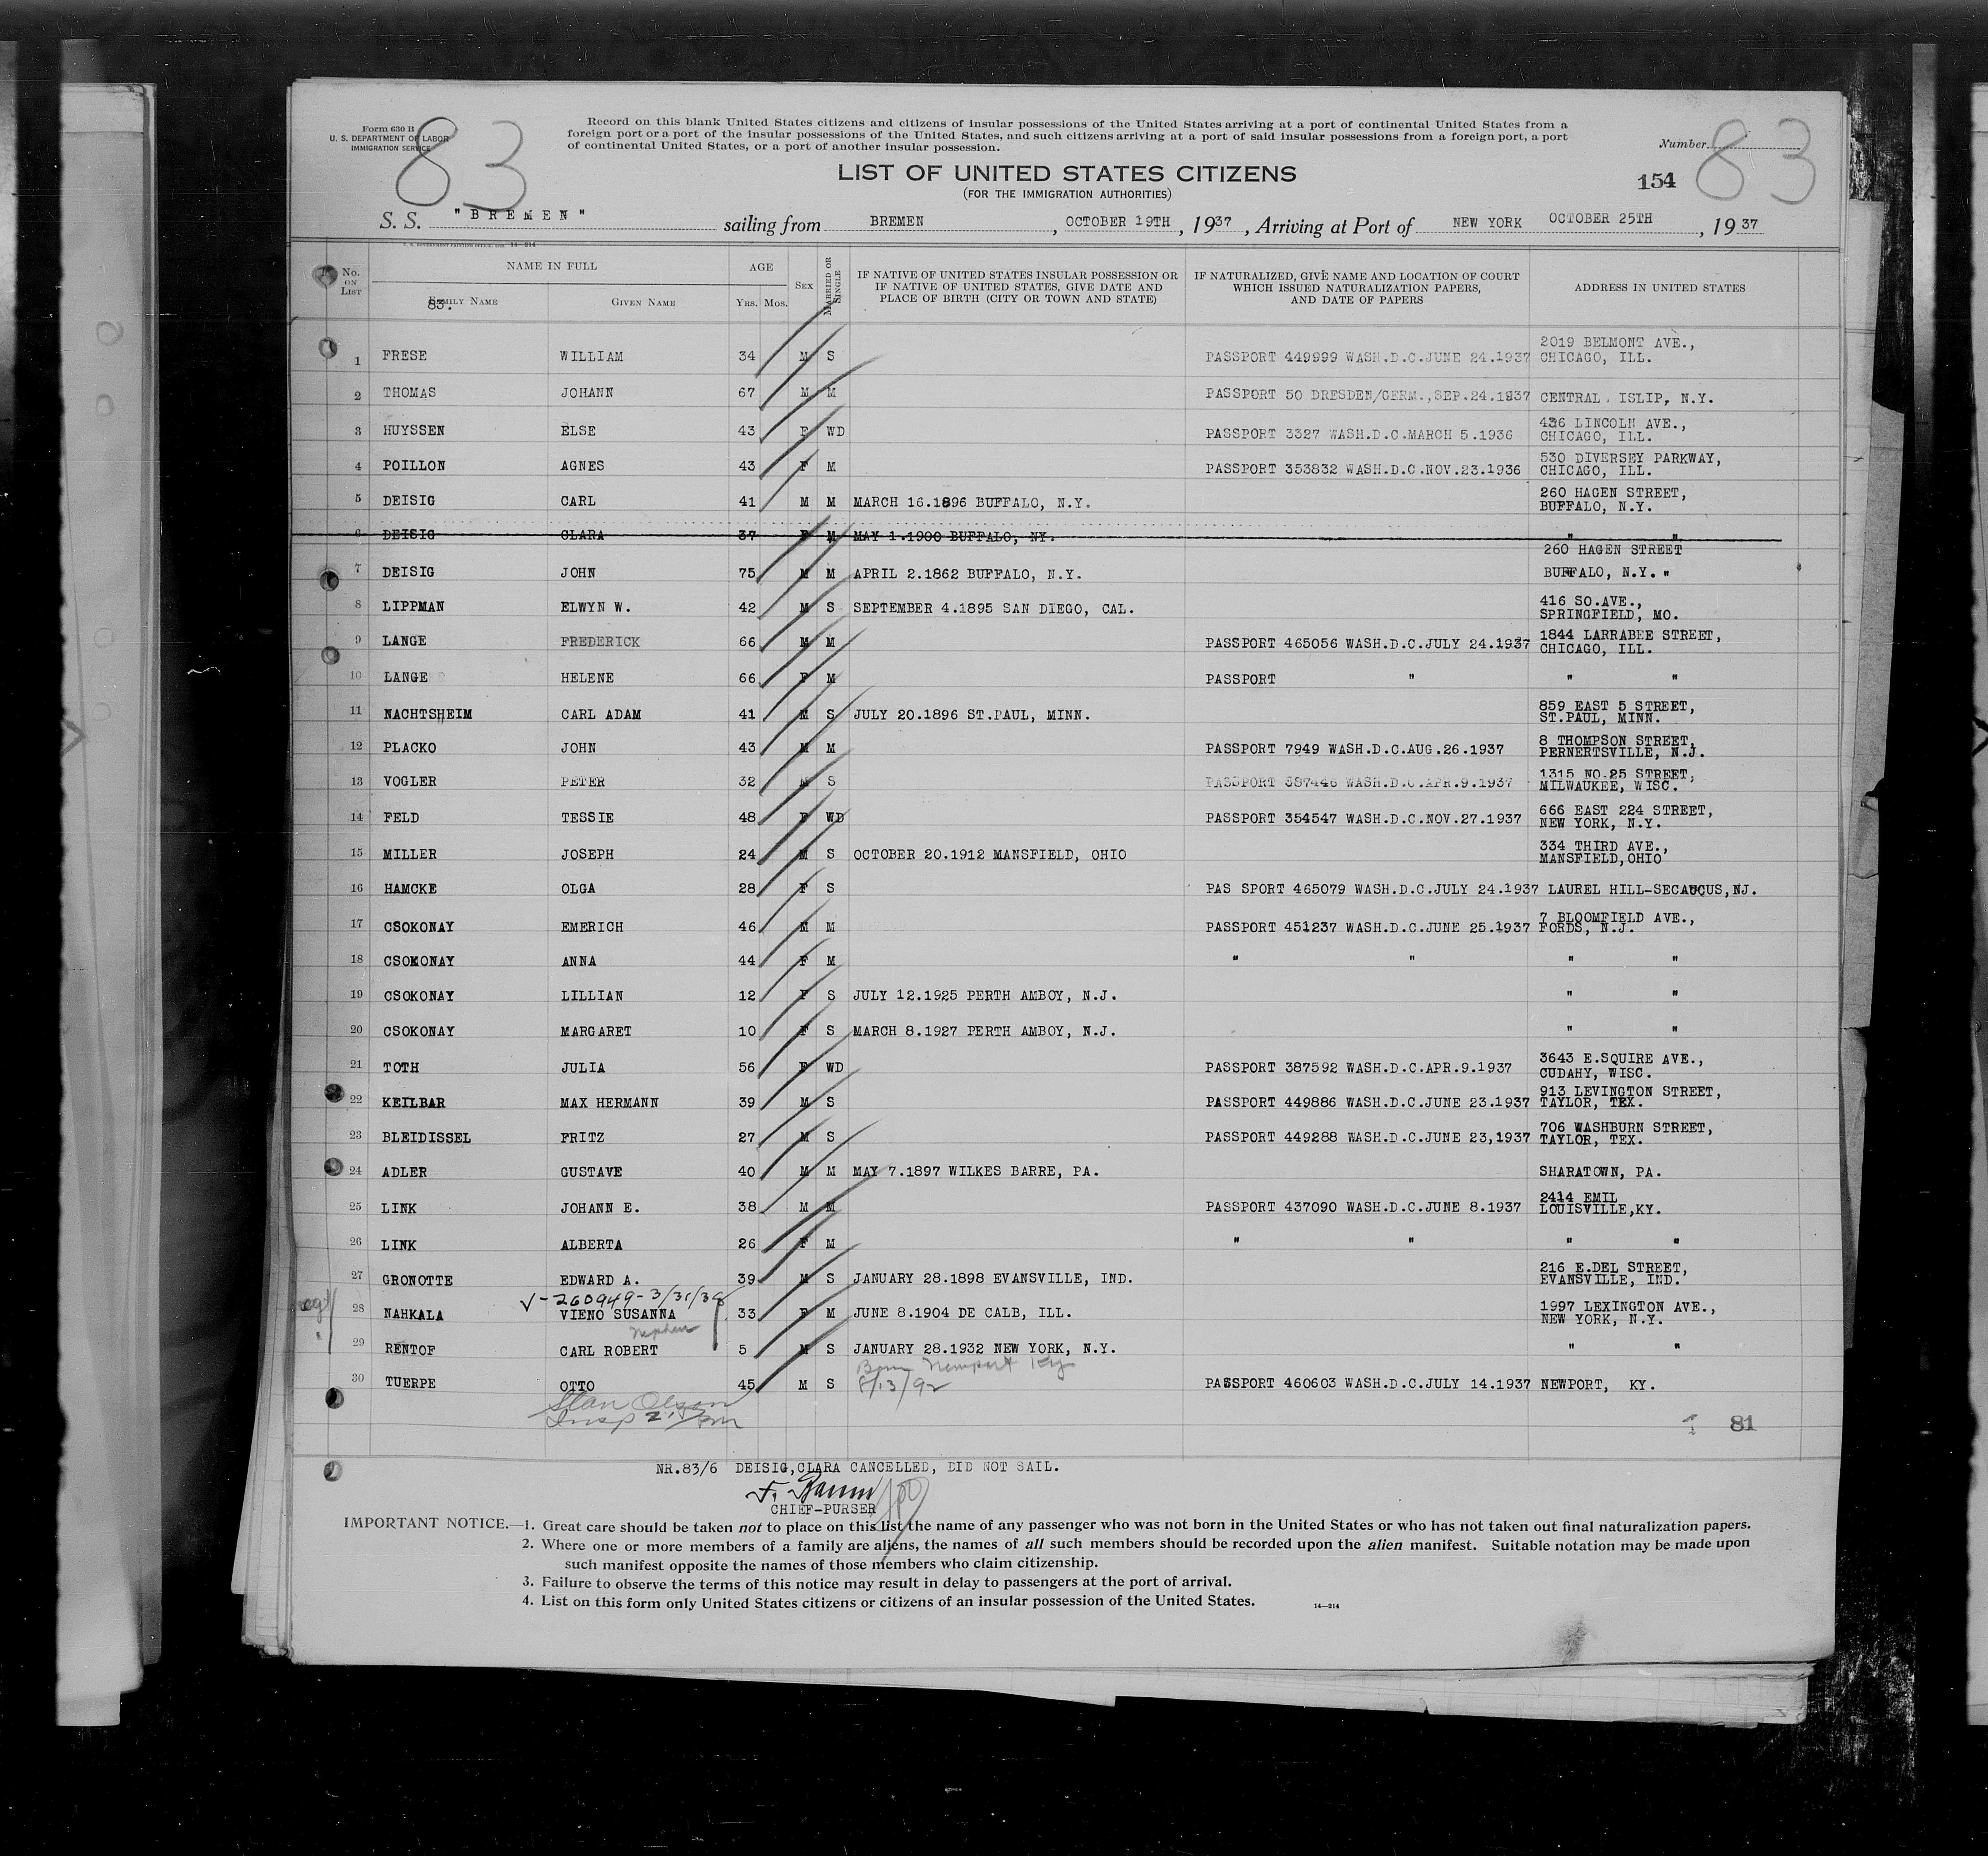 Form 630 B
U. S. DEPARTMENT OF LABOR
IMMIGRATION SERVICE
83
Record on this blank United States citizens and citizens of insular possessions of the United States arriving at a port of continental United States from a
foreign port or a port of the insular possessions of the United States, and such citizens arriving at a port of said insular possessions from a foreign port, a port
of continental United States, or a port of another insular possession.
Number 83
LIST OF UNITED STATES CITIZENS
(FOR THE IMMIGRATION AUTHORITIES)
154
S. S. "BREMEN" sailing from BREMEN, OCTOBER 19TH, 1937, Arriving at Port of NEW YORK OCTOBER 25TH, 1937
U. S. GOVERNMENT PRINTING OFFICE 14—214
No. ON LIST
NAME IN FULL
FAMILY NAME
83.
GIVEN NAME
AGE
Yrs. Mos.
SEX
MARRIED OR SINGLE
IF NATIVE OF UNITED STATES INSULAR POSSESSION OR
IF NATIVE OF UNITED STATES, GIVE DATE AND
PLACE OF BIRTH (CITY OR TOWN AND STATE)
IF NATURALIZED, GIVE NAME AND LOCATION OF COURT
WHICH ISSUED NATURALIZATION PAPERS,
AND DATE OF PAPERS
ADDRESS IN UNITED STATES
1 FRESE WILLIAM 34 M S PASSPORT 449999 WASH.D.C.JUNE 24.1937 2019 BELMONT AVE.,
CHICAGO, ILL.
2 THOMAS JOHANN 67 M M PASSPORT 50 DRESDEN/GERM.,SEP.24.1937 CENTRAL ISLIP, N.Y.
3 HUYSSEN ELSE 43 F WD PASSPORT 3327 WASH.D.C.MARCH 5.1936 436 LINCOLN AVE.,
CHICAGO, ILL.
4 POILLON AGNES 43 F M PASSPORT 353832 WASH.D.C.NOV.23.1936 530 DIVERSEY PARKWAY,
CHICAGO, ILL.
5 DEISIG CARL 41 M M MARCH 16.1896 BUFFALO, N.Y. 260 HAGEN STREET,
BUFFALO, N.Y.
6 DEISIG CLARA 37 F M MAY 1.1900 BUFFALO, NY. " "
260 HAGEN STREET
7 DEISIG JOHN 75 M M APRIL 2.1862 BUFFALO, N.Y. BUFFALO, N.Y. "
8 LIPPMAN ELWYN W. 42 M S SEPTEMBER 4.1895 SAN DIEGO, CAL. 416 SO.AVE.,
SPRINGFIELD, MO.
9 LANGE FREDERICK 66 M M PASSPORT 465056 WASH.D.C.JULY 24.1937 1844 LARRABEE STREET,
CHICAGO, ILL.
10 LANGE HELENE 66 F M PASSPORT " " "
11 NACHTSHEIM CARL ADAM 41 M S JULY 20.1896 ST.PAUL, MINN. 859 EAST 5 STREET,
ST.PAUL, MINN.
12 PLACKO JOHN 43 M M PASSPORT 7949 WASH.D.C.AUG.26.1937 8 THOMPSON STREET,
PERNERTSVILLE, N.J.
13 VOGLER PETER 32 M S PASSPORT 387446 WASH.D.C.APR.9.1937 1315 NO.25 STREET,
MILWAUKEE, WISC.
14 FELD TESSIE 48 F WD PASSPORT 354547 WASH.D.C.NOV.27.1937 666 EAST 224 STREET,
NEW YORK, N.Y.
15 MILLER JOSEPH 24 M S OCTOBER 20.1912 MANSFIELD, OHIO 334 THIRD AVE.,
MANSFIELD,OHIO
16 HAMCKE OLGA 28 F S PAS SPORT 465079 WASH.D.C.JULY 24.1937 LAUREL HILL-SECAUCUS,NJ.
17 CSOKONAY EMERICH 46 M M PASSPORT 451237 WASH.D.C.JUNE 25.1937 7 BLOOMFIELD AVE.,
FORDS, N.J.
18 CSOKONAY ANNA 44 F M " " " "
19 CSOKONAY LILLIAN 12 F S JULY 12.1925 PERTH AMBOY, N.J. " "
20 CSOKONAY MARGARET 10 F S MARCH 8.1927 PERTH AMBOY, N.J. " "
21 TOTH JULIA 56 F WD PASSPORT 387592 WASH.D.C.APR.9.1937 3643 E.SQUIRE AVE.,
CUDAHY, WISC.
22 KEILBAR MAX HERMANN 39 M S PASSPORT 449886 WASH.D.C.JUNE 23.1937 913 LEVINGTON STREET,
TAYLOR, TEX.
23 BLEIDISSEL FRITZ 27 M S PASSPORT 449288 WASH.D.C.JUNE 23,1937 706 WASHBURN STREET,
TAYLOR, TEX.
24 ADLER GUSTAVE 40 M M MAY 7.1897 WILKES BARRE, PA. SHARATOWN, PA.
25 LINK JOHANN E. 38 M M PASSPORT 437090 WASH.D.C.JUNE 8.1937 2414 EMIL
LOUISVILLE,KY.
26 LINK ALBERTA 26 F M " " " "
27 GRONOTTE EDWARD A. 39 M S JANUARY 28.1898 EVANSVILLE, IND. 216 E.DEL STREET,
EVANSVILLE, IND.
V-260949-3/31/38
28 NAHKALA VIENO SUSANNA 33 F M JUNE 8.1904 DE CALB, ILL. 1997 LEXINGTON AVE.,
NEW YORK, N.Y.
Nephew
29 RENTOF CARL ROBERT 5 M S JANUARY 28.1932 NEW YORK, N.Y. " "
Born Newport Ky
8/13/92
30 TUERPE OTTO 45 M S PASSPORT 460603 WASH.D.C.JULY 14.1937 NEWPORT, KY.
Stan Olson
Insp
81
NR.83/6 DEISIG,CLARA CANCELLED, DID NOT SAIL.
CHIEF-PURSER
IMPORTANT NOTICE.—1. Great care should be taken not to place on this list the name of any passenger who was not born in the United States or who has not taken out final naturalization papers.
2. Where one or more members of a family are aliens, the names of all such members should be recorded upon the alien manifest. Suitable notation may be made upon
such manifest opposite the names of those members who claim citizenship.
3. Failure to observe the terms of this notice may result in delay to passengers at the port of arrival.
4. List on this form only United States citizens or citizens of an insular possession of the United States.
14—214